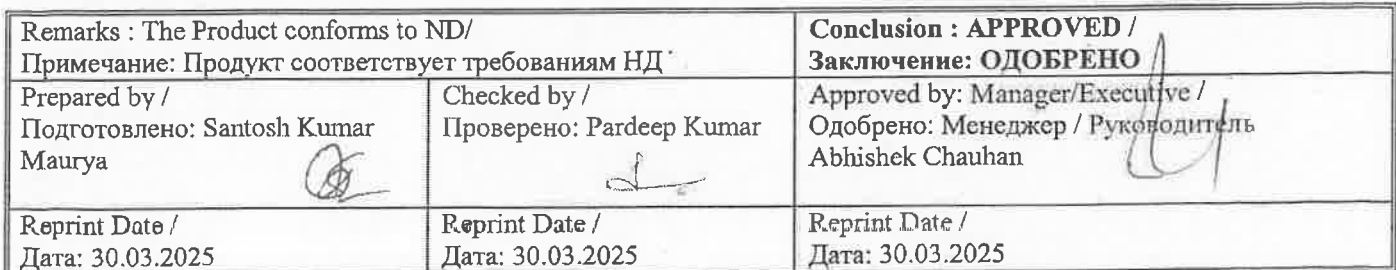 Remarks : The Product conforms to ND/
Примечание: Продукт соответствует требованиям НД
Conclusion : APPROVED /
Заключение: ОДОБРЕНО
Prepared by /
Подготовлено: Santosh Kumar
Maurya
Checked by /
Проверено: Pardeep Kumar
Approved by: Manager/Executive /
Одобрено: Менеджер / Руководитель
Abhishek Chauhan
Reprint Date /
Дата: 30.03.2025
Reprint Date /
Дата: 30.03.2025
Reprint Date /
Дата: 30.03.2025